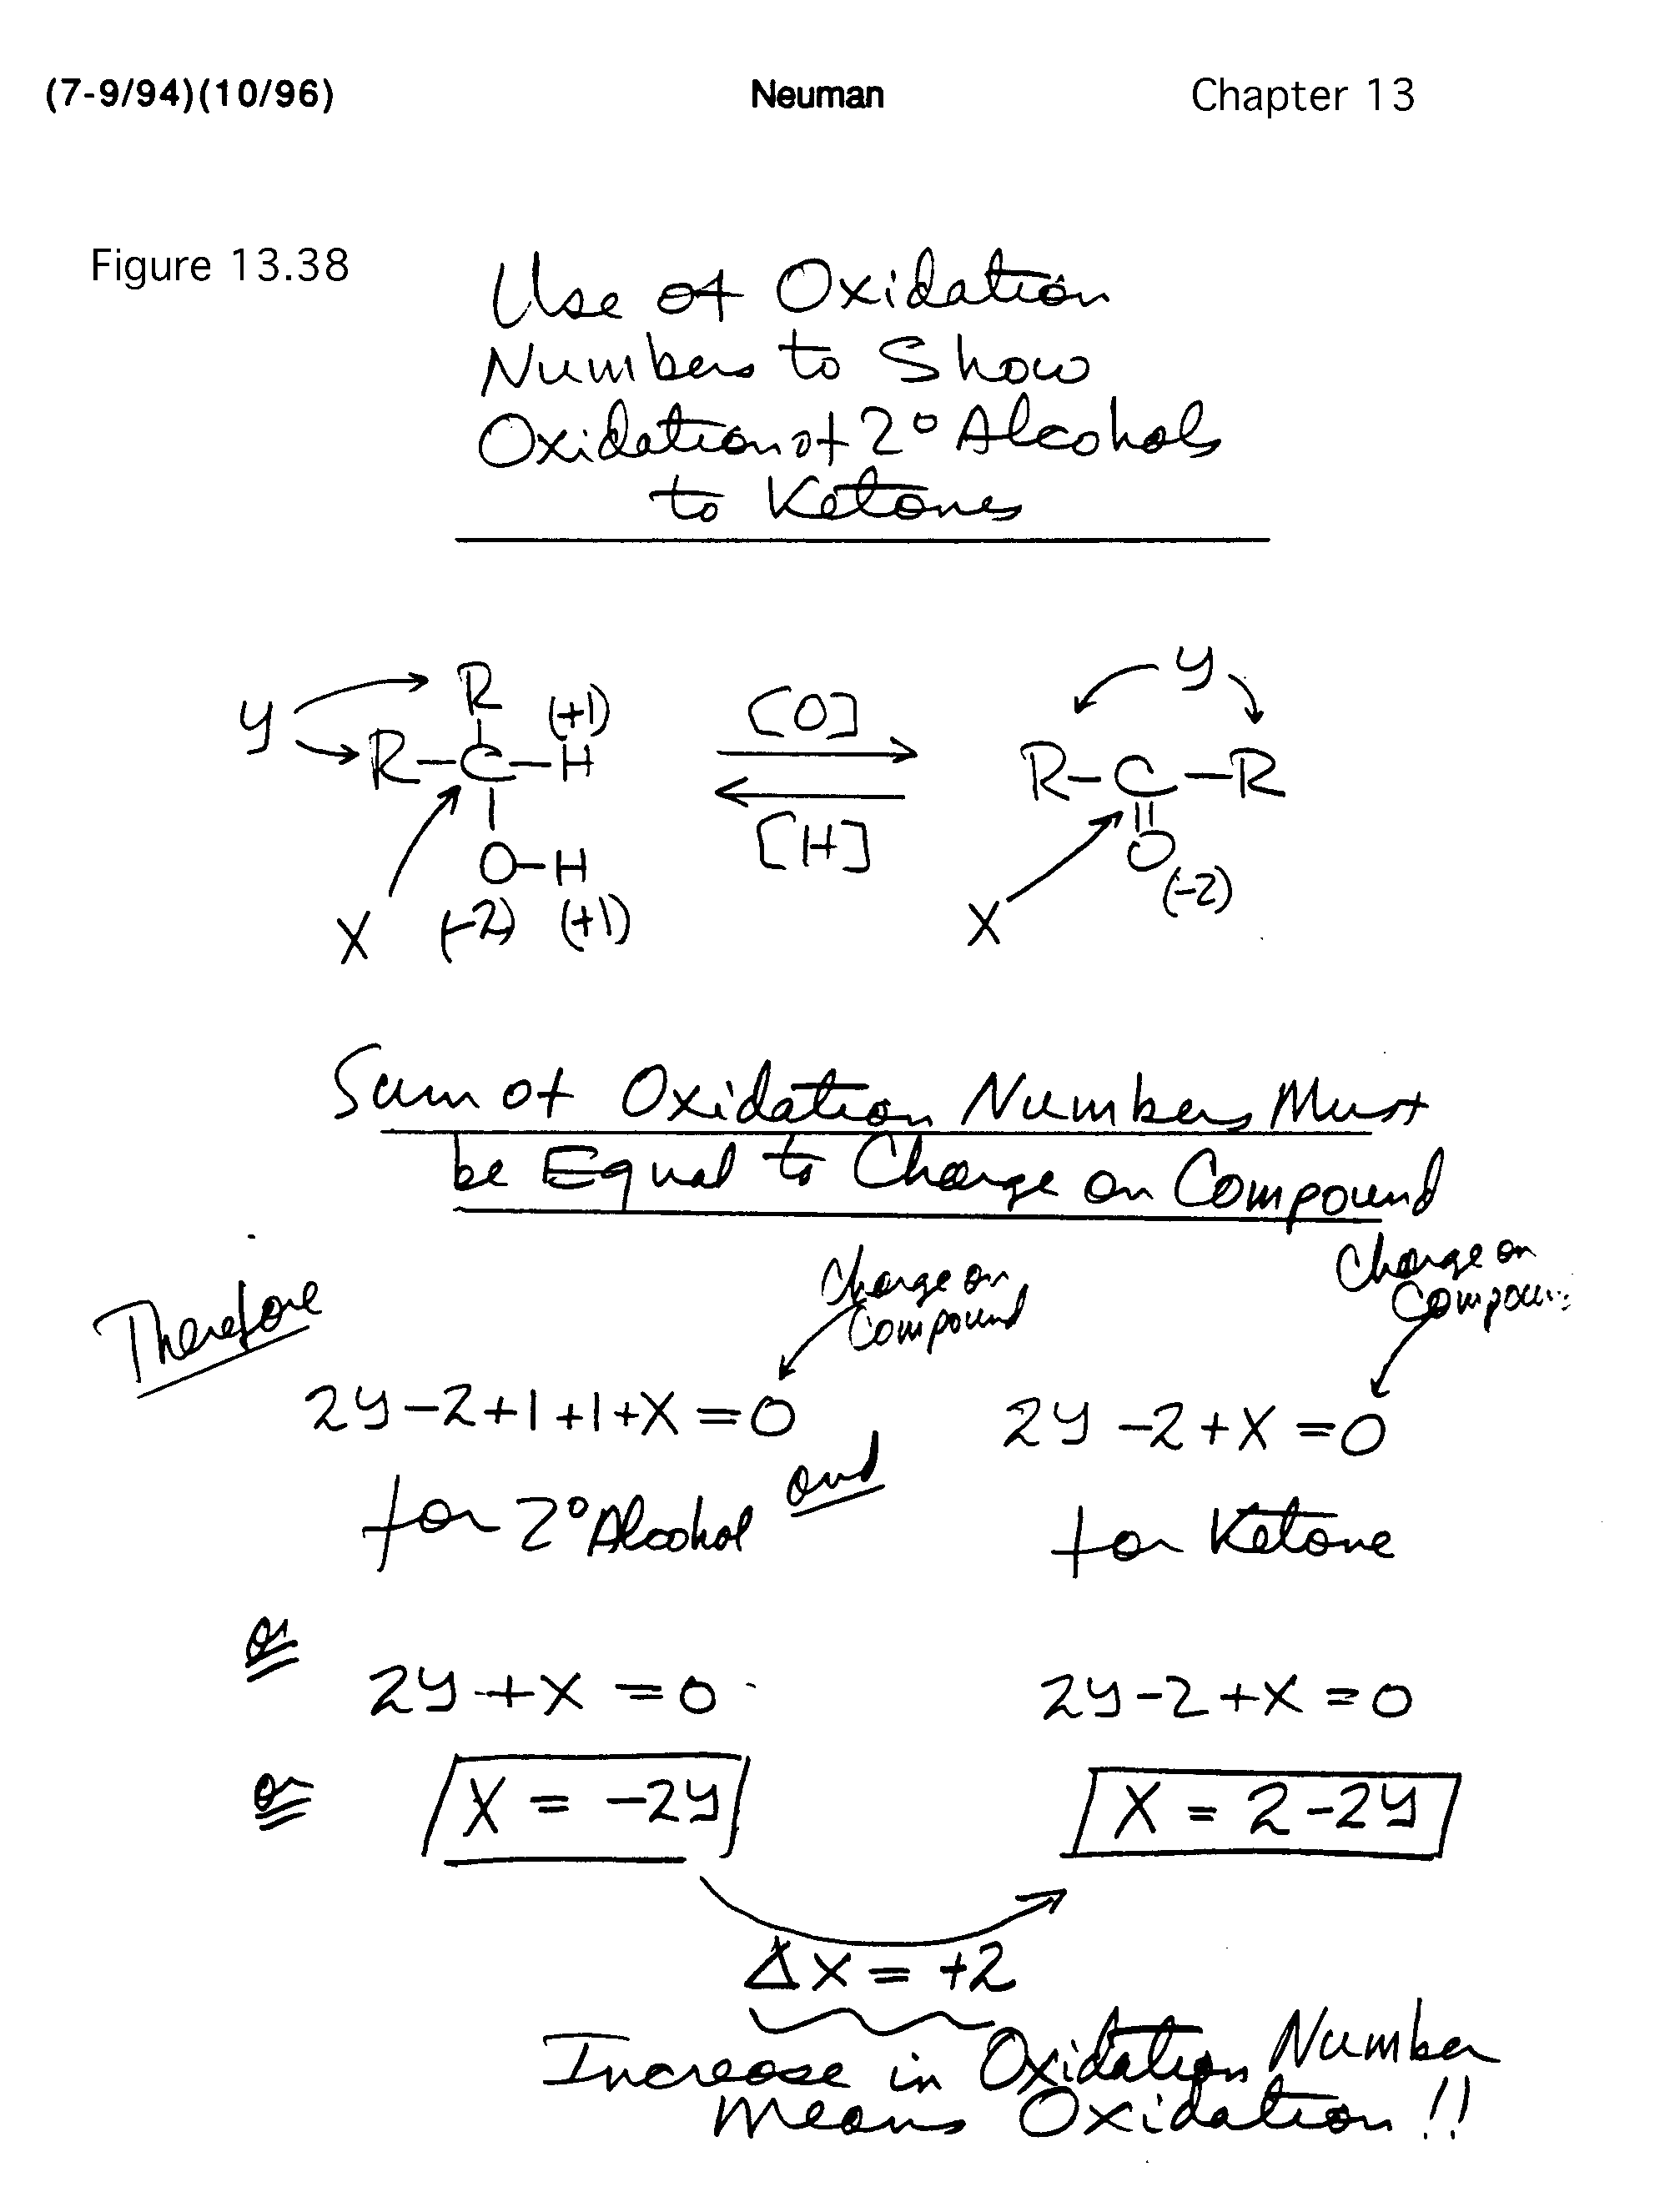 (7-9/94)(10/96) Neuman Chapter 13
Figure 13.38
Use of Oxidation
Numbers to Show
Oxidation of 2° Alcohols
to Ketones
y R (+1) [O] y
R-C-H R-C-R
O-H [H] O
X (-2) (+1) X (-2)
Sum of Oxidation Numbers Must
be Equal to Charge on Compound
Therefore
Charge on
Compound
Charge on
2y-2+1+1+X=0 and 2y-2+X=0
for 2° Alcohol for Ketone
or
2y+X=0 2y-2+X=0
or X = -2y X = 2-2y
ΔX = +2
Increase in Oxidation Number
Means Oxidation!!